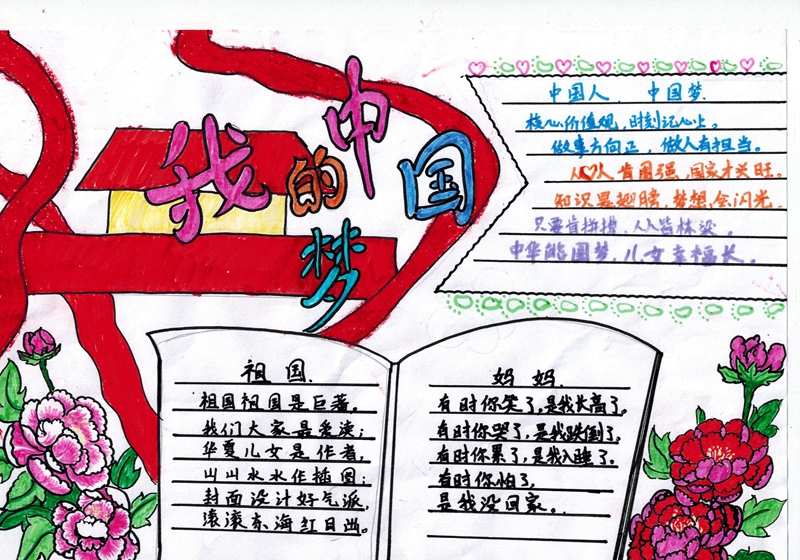 我的中国梦
中国人 中国梦
核心价值观,时刻记心上。
做事方向正,做人有担当。
人人肯图强,国家才兴旺。
知识是 梦想会闪光。
只要肯拼搏,人人皆栋梁。
中华能圆梦,儿女幸福长。
祖国
祖国祖国是巨著,
我们大家最爱读;
华夏儿女是作者,
山山水水作插图;
封面设计好气派,
滚滚东海红日出。
妈妈
有时你笑了,是我长高了。
有时你哭了,是我跌倒了。
有时你累了,是我入睡了。
有时你怕了,
是我没回家。